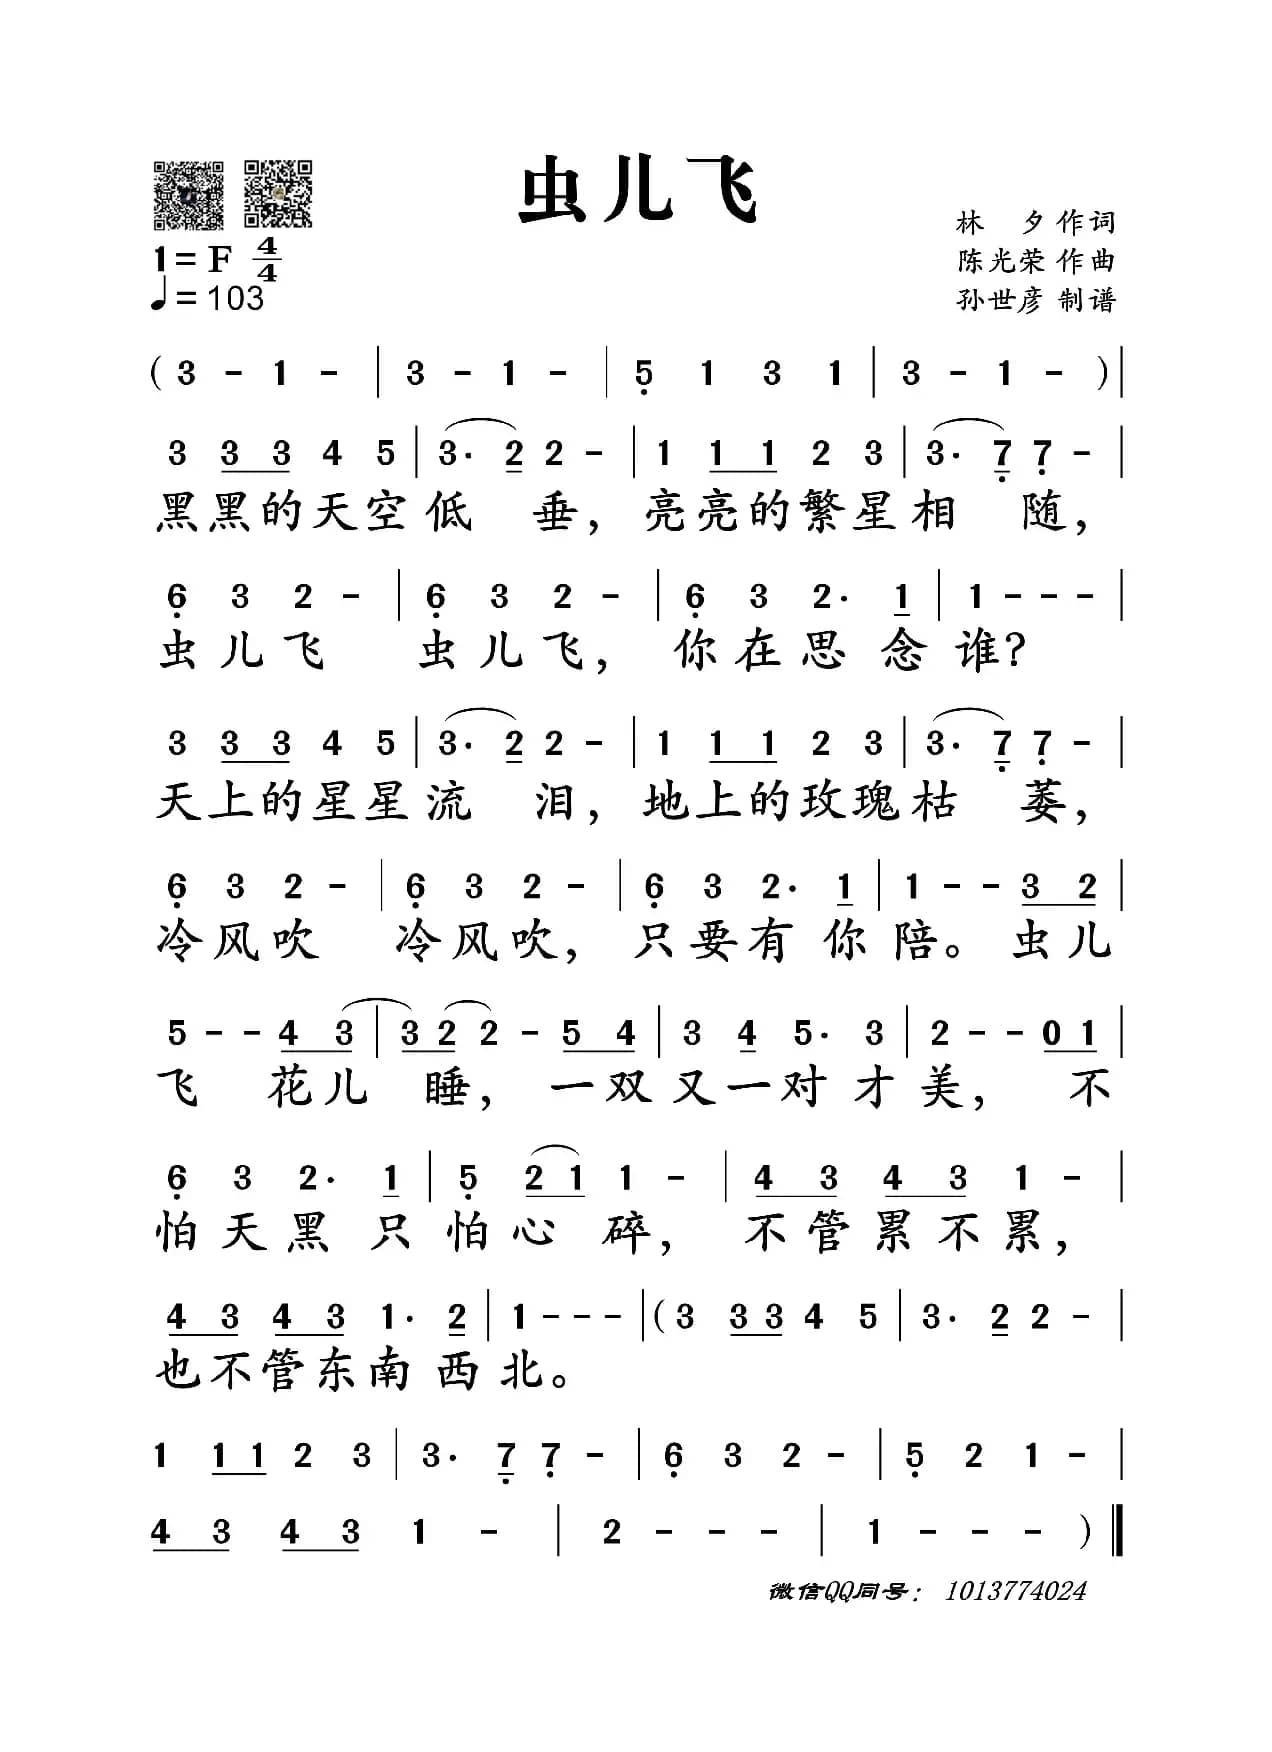 虫儿飞
1=F 4/4
♩=103
林 夕 作词
陈光荣 作曲
孙世彦 制谱
( 3 - 1 - | 3 - 1 - | 5̣ 1 3 1 | 3 - 1 - ) |
3 3 3 4 5 | 3· 2 2 - | 1 1 1 2 3 | 3· 7̣ 7̣ - |
黑黑的天空低 垂，亮亮的繁星相 随，
6̣ 3 2 - | 6̣ 3 2 - | 6̣ 3 2· 1 | 1 - - - |
虫儿飞 虫儿飞，你在思念谁？
3 3 3 4 5 | 3· 2 2 - | 1 1 1 2 3 | 3· 7̣ 7̣ - |
天上的星星流 泪，地上的玫瑰枯 萎，
6̣ 3 2 - | 6̣ 3 2 - | 6̣ 3 2· 1 | 1 - - 3 2 |
冷风吹 冷风吹，只要有你陪。虫儿
5 - - 4 3 | 3 2 2 - 5 4 | 3 4 5· 3 | 2 - - 0 1 |
飞 花儿 睡，一双又一对才美，不
6̣ 3 2· 1 | 5̣ 2 1 1 - | 4 3 4 3 1 - |
怕天黑只怕心 碎，不管累不累，
4 3 4 3 1· 2 | 1 - - - | ( 3 3 3 4 5 | 3· 2 2 - |
也不管东南西北。
1 1 1 2 3 | 3· 7̣ 7̣ - | 6̣ 3 2 - | 5̣ 2 1 - |
4 3 4 3 1 - | 2 - - - | 1 - - - ) ‖
微信QQ同号：1013774024